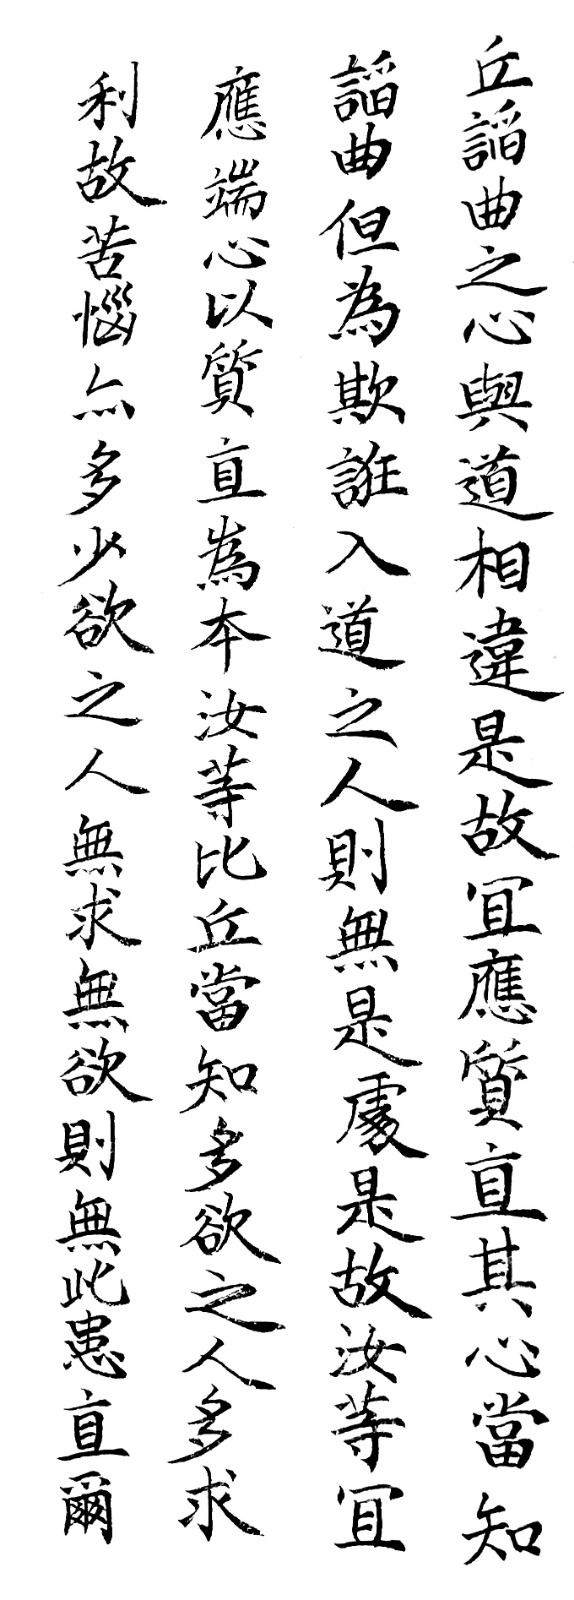 丘謟曲之心與道相違是故冝應質直其心當知
謟曲但為欺誑入道之人則無是處是故汝等冝
應端心以質直為本汝等比丘當知多欲之人多求
利故苦惱亦多少欲之人無求無欲則無此患直爾